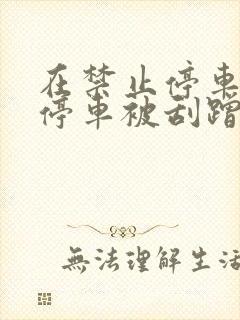 在禁止停車
停車被刮蹭
無法理解生活